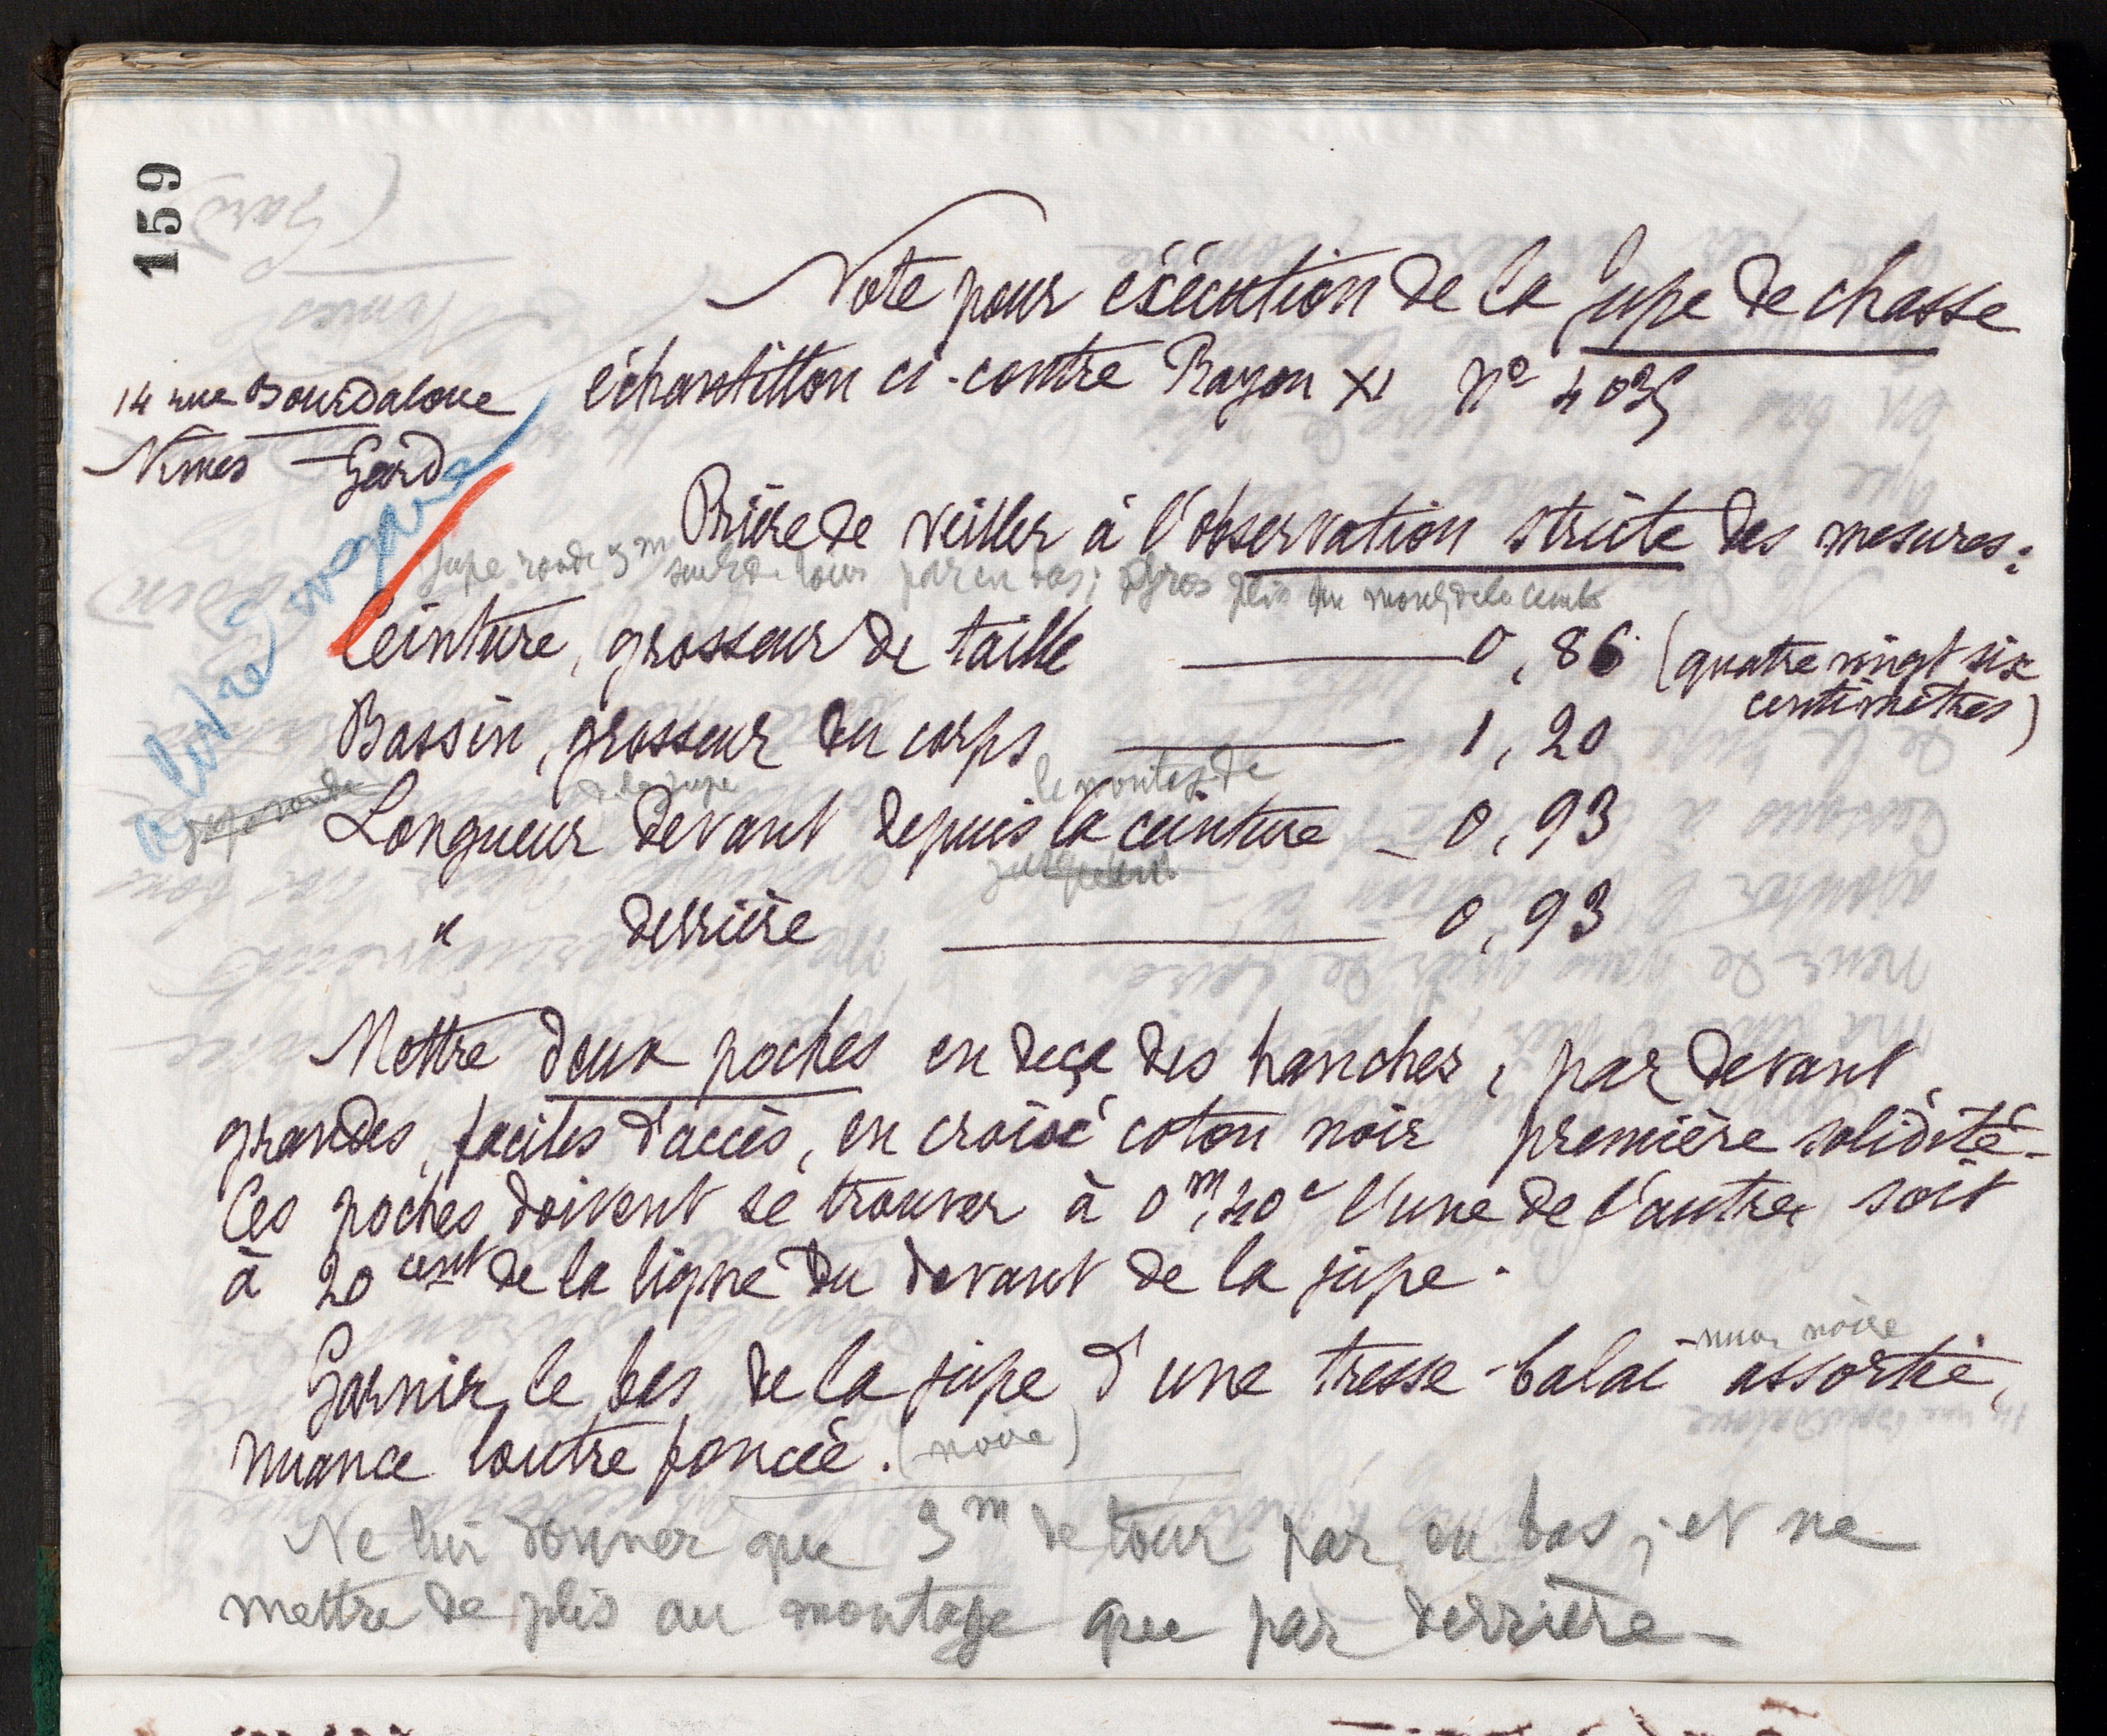 159
Note pour éxécution de la Jupe de chasse
échantillon ci-contre Rayon XI Nº 4035
14 rue Bourdaloue
Nîmes Gard
Prière de veiller à l'observation stricte des mesures :
Jupe ronde 3m de tour par en bas ;
Ceinture, grosseur de taille 0,86 (quatre vingt six
centimètres)
Bassin, grosseur du corps 1,20
jupe ronde de la jupe le montage de
Longueur devant depuis la ceinture 0,93
" derrière 0,93
Mettre deux poches en deça des hanches, par devant,
grandes, faciles d'accès, en croisé coton noir première solidité -
Ces poches doivent se trouver à 0m,40c l'une de l'autre, soit
à 20 cent de la ligne du devant de la jupe.
noire
Garnir le bas de la jupe d'une tresse-balai assortie,
nuance loutre foncée. (noire)
Ne lui donner que 3m de tour par en bas, et ne
mettre de plis au montage que par derrière -